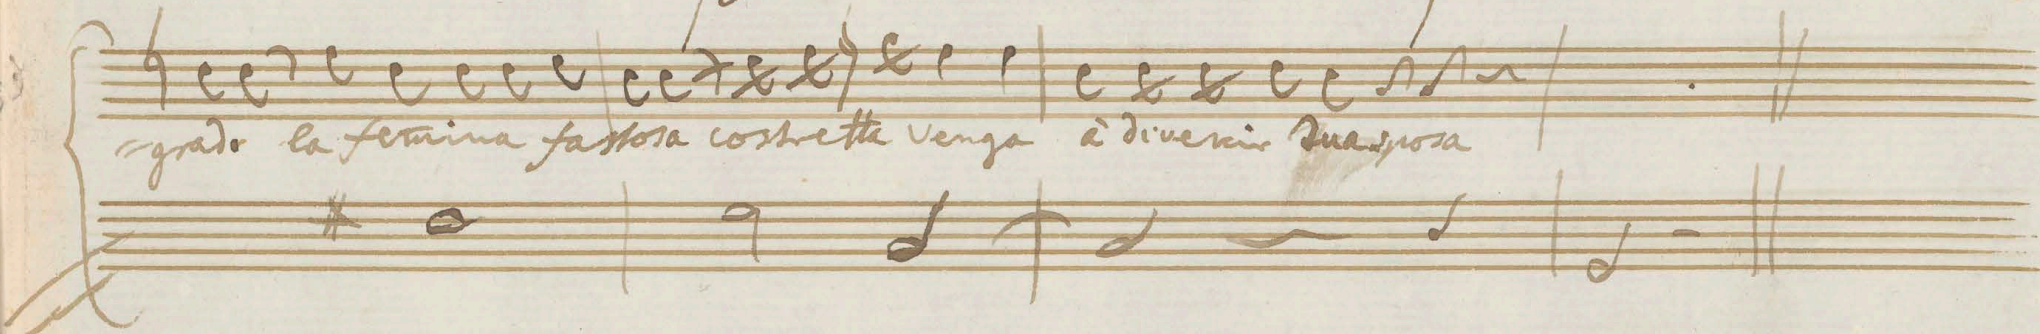 =grado la femina fastosa costretta venga à divenir sua sposa